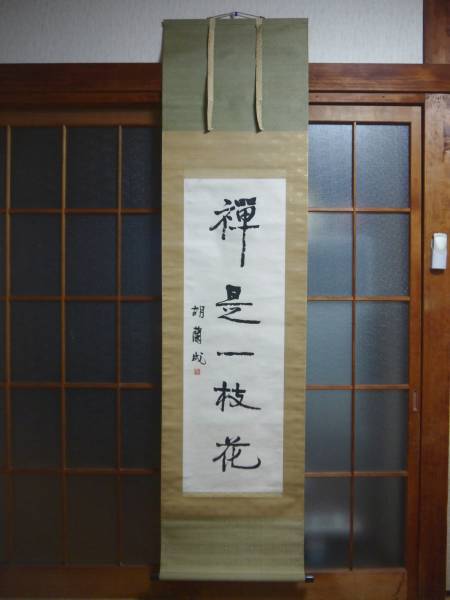 禪是一枝花
胡蘭成